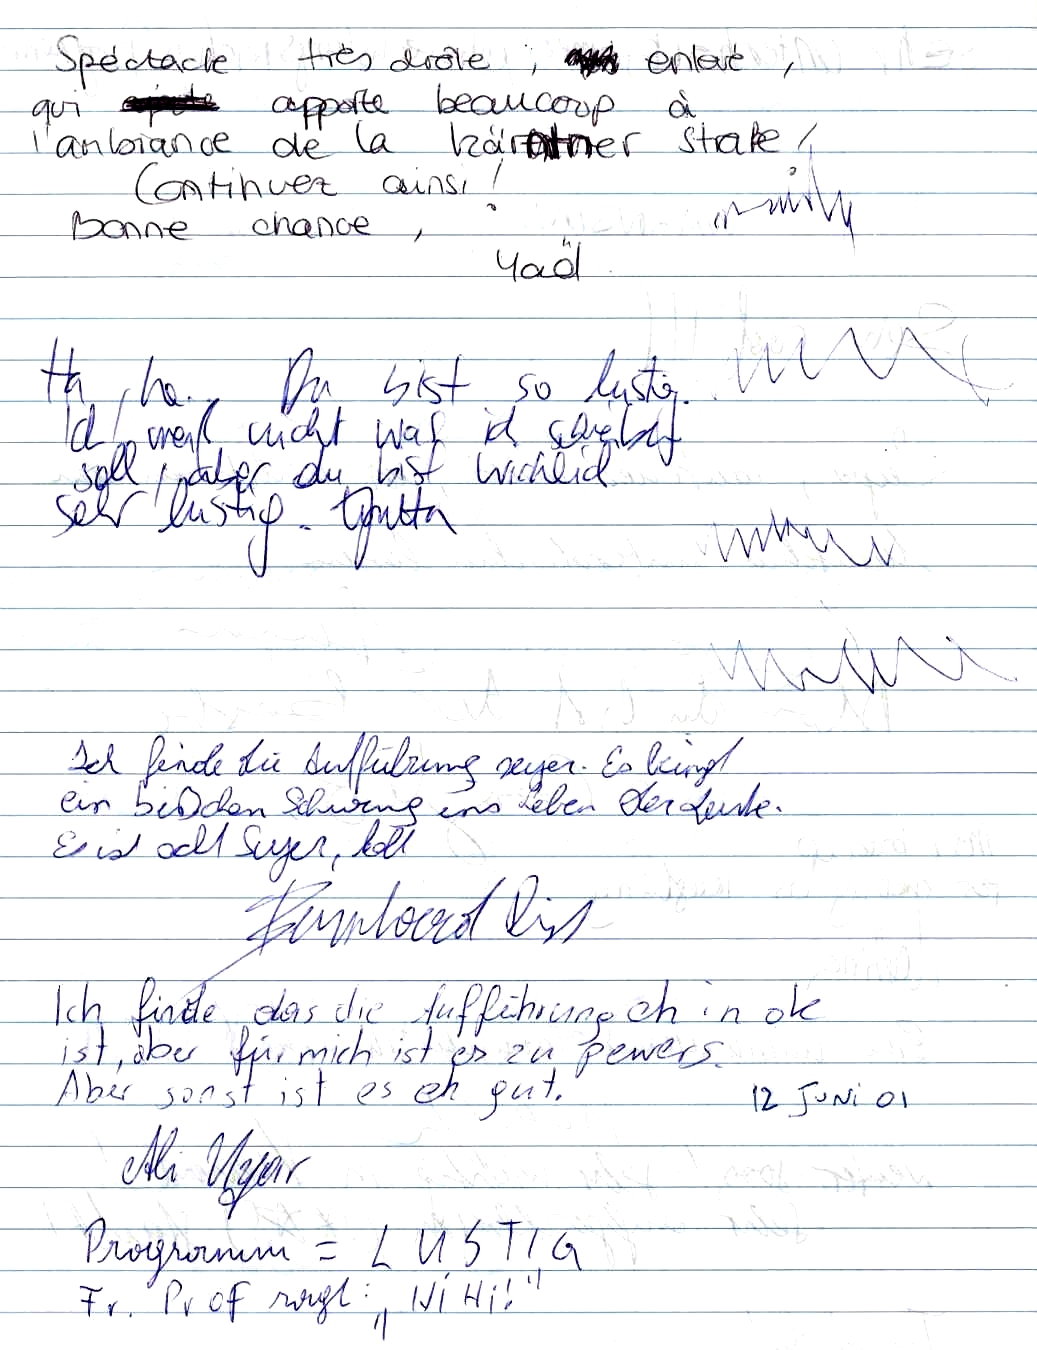 Spéctacle très drôle, enlevé,
qui apporte beaucoup à
l'anbiance de la Kärntner Straße!
Continuez ainsi!
Bonne chance,
Yaël
Ha, ha.. Du bist so lustig.
Ich weiß nicht was ich schreiben
soll, aber du bist wirklich
sehr lustig. Jutta
Ich finde die Aufführung super. Es bringt
ein bißchen Schwung ins Leben der Leute.
Es ist echt Super, toll
Ich finde das die Aufführung eh in ok
ist, aber für mich ist es zu pewers.
Aber sonst ist es eh gut.
12 JUNI 01
Ali Uyar
Programm = LUSTIG
Fr. Prof sagt: „Hi Hi!"